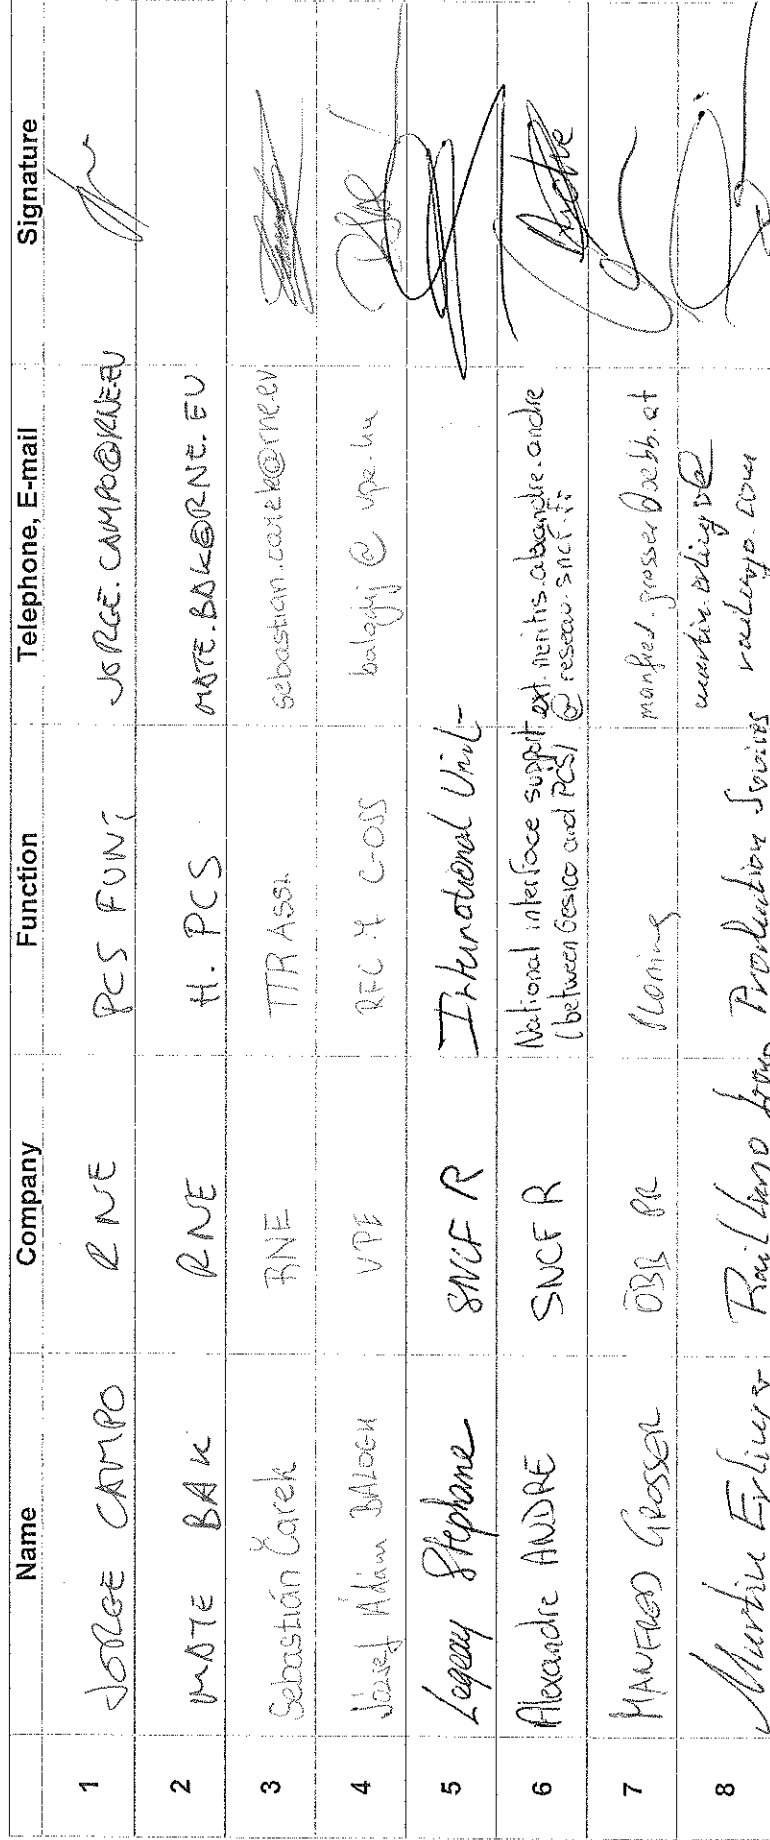 Name Company Function Telephone, E-mail Signature
1 JORGE CAMPO RNE PCS FUNC JORGE.CAMPO@RNE.EU
2 MATE BAK RNE H. PCS MATE.BAK@RNE.EU
3 Sebastián Čarek RNE TTR ASSI. sebastian.carek@rne.eu
4 József Ádám BALOGH VPE RFC 7 C-OSS baloghj@vpe.hu
5 Legeay Stéphane SNCF R International Unit
6 Alexandre ANDRE SNCF R National interface support ext.neritis.alexandre.andre
(between Gesico and PCS) @reseau.sncf.fr
7 MANFRED GROSSER ÖBB PR Planing manfred.grosser@oebb.at
8 Martin Erlinger Rail Cargo Production Services martin.erlinger@
railcargo.com